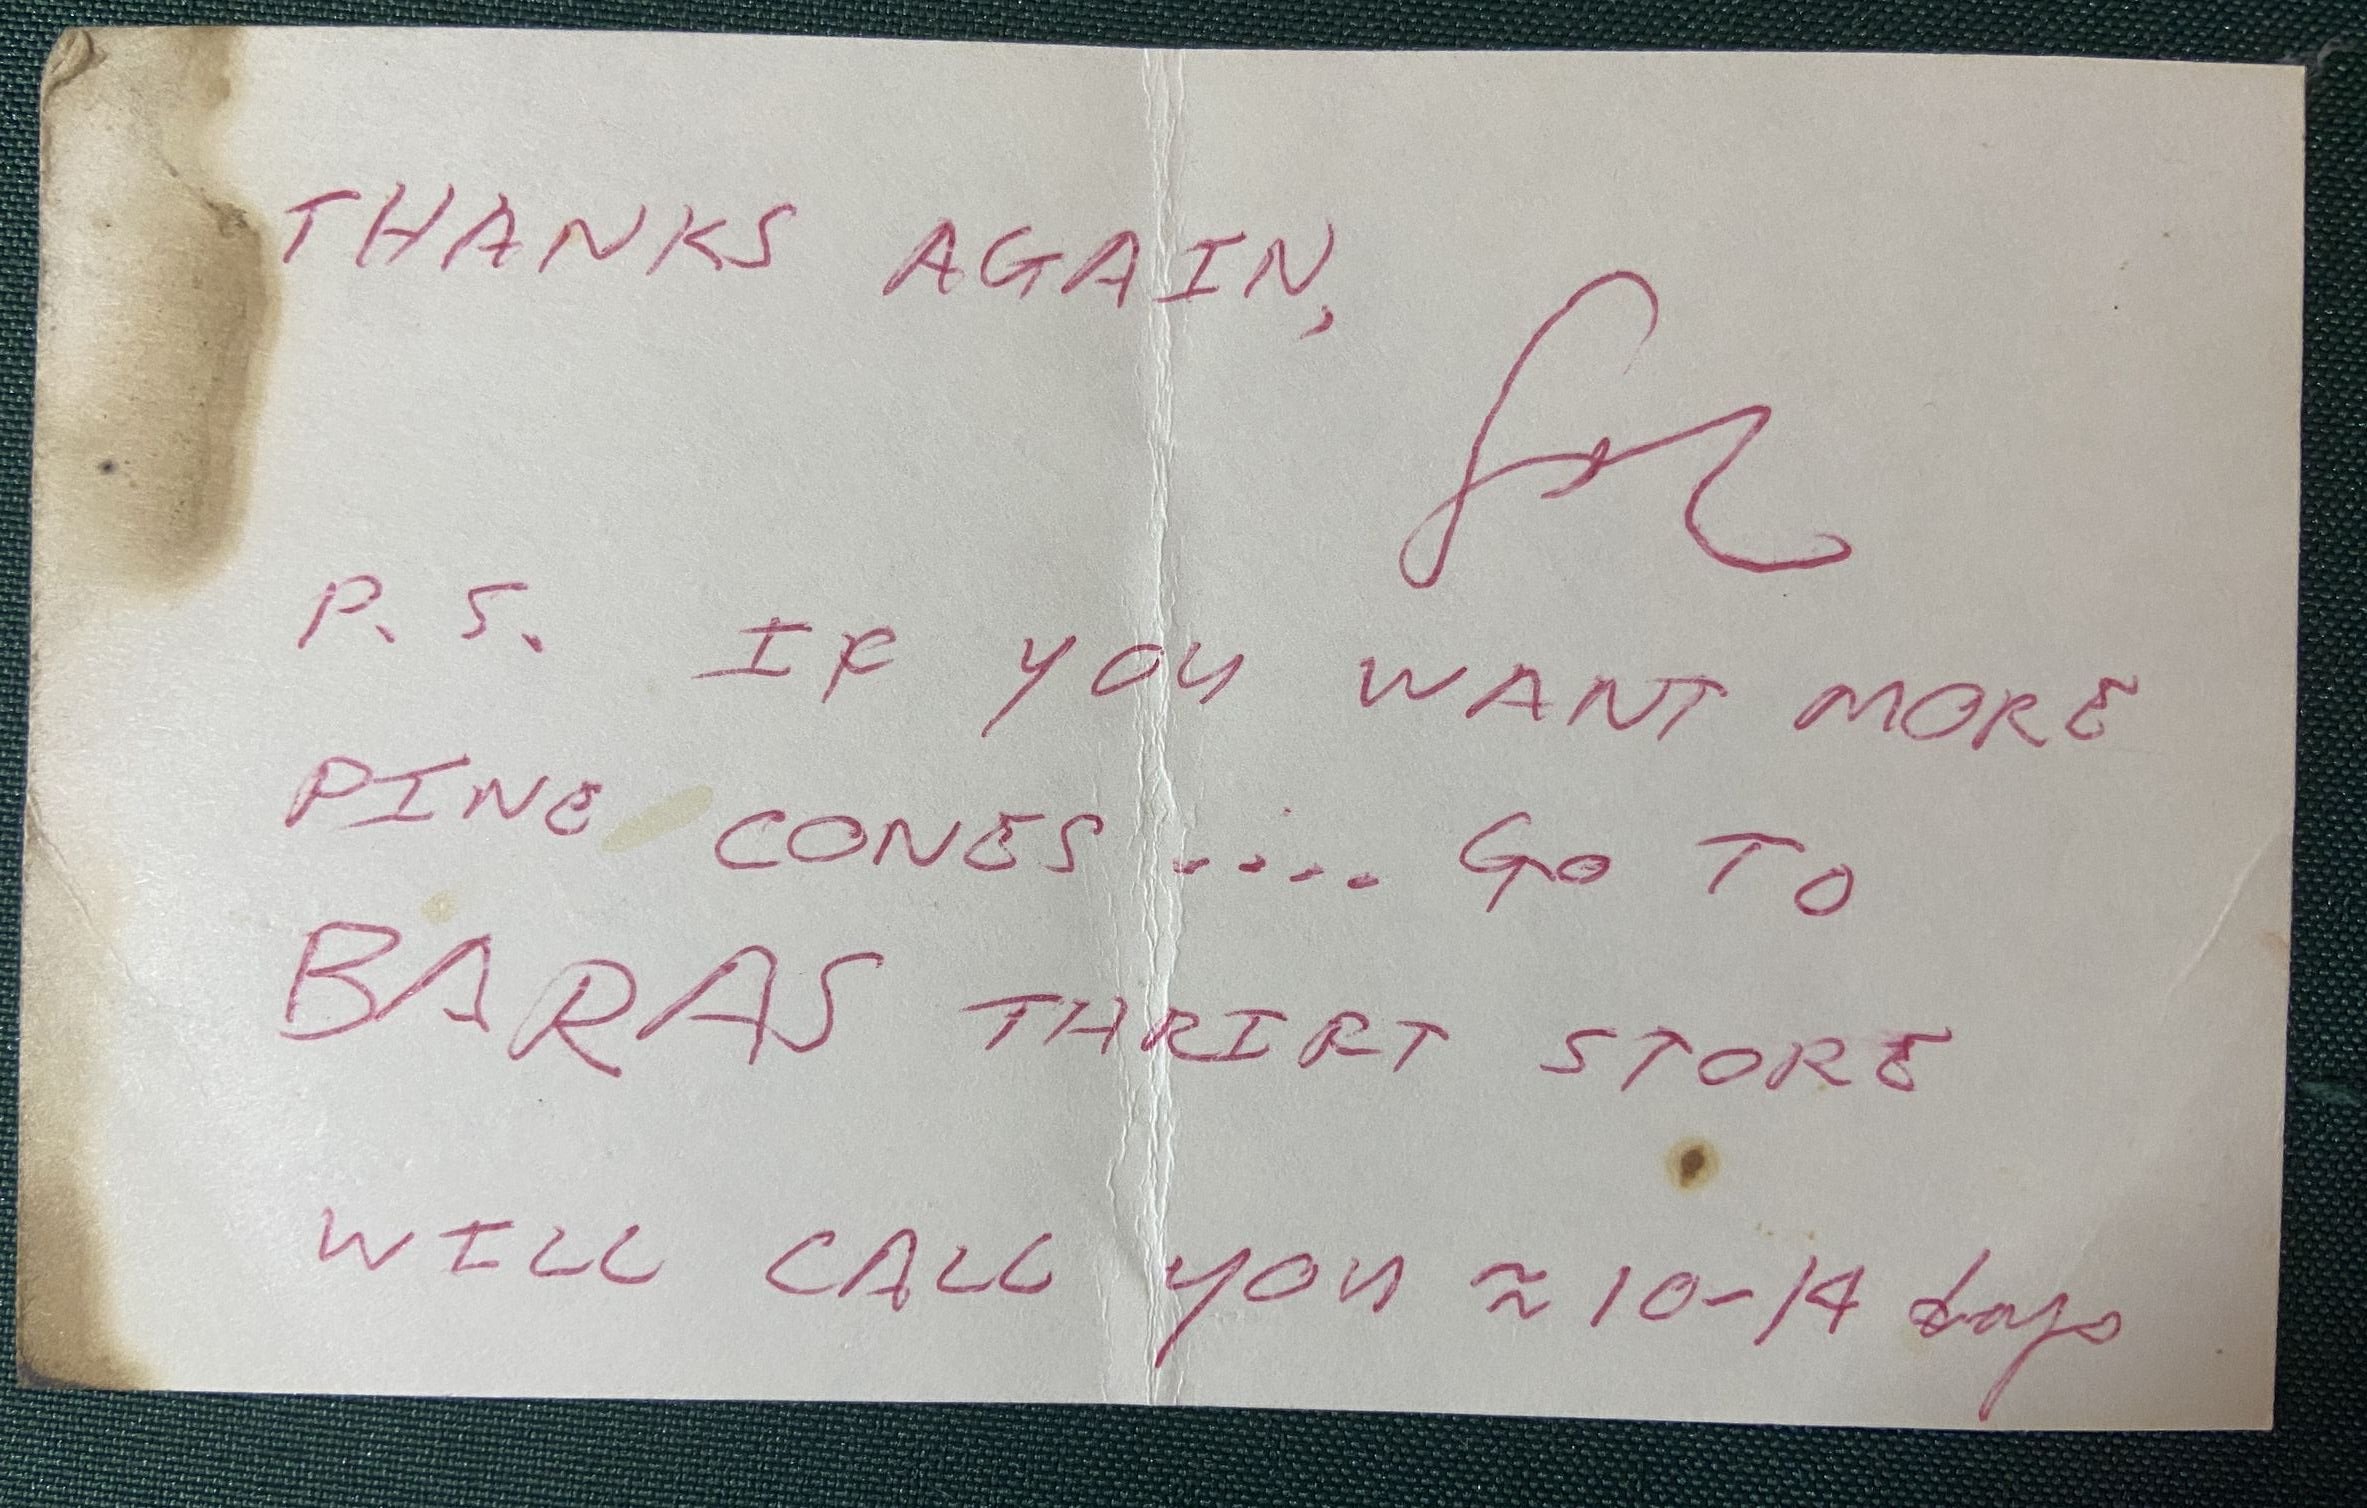 THANKS AGAIN,
P.S. IF YOU WANT MORE
PINE CONES.... GO TO
BARAS THRIFT STORE
WILL CALL YOU ≈ 10-14 days